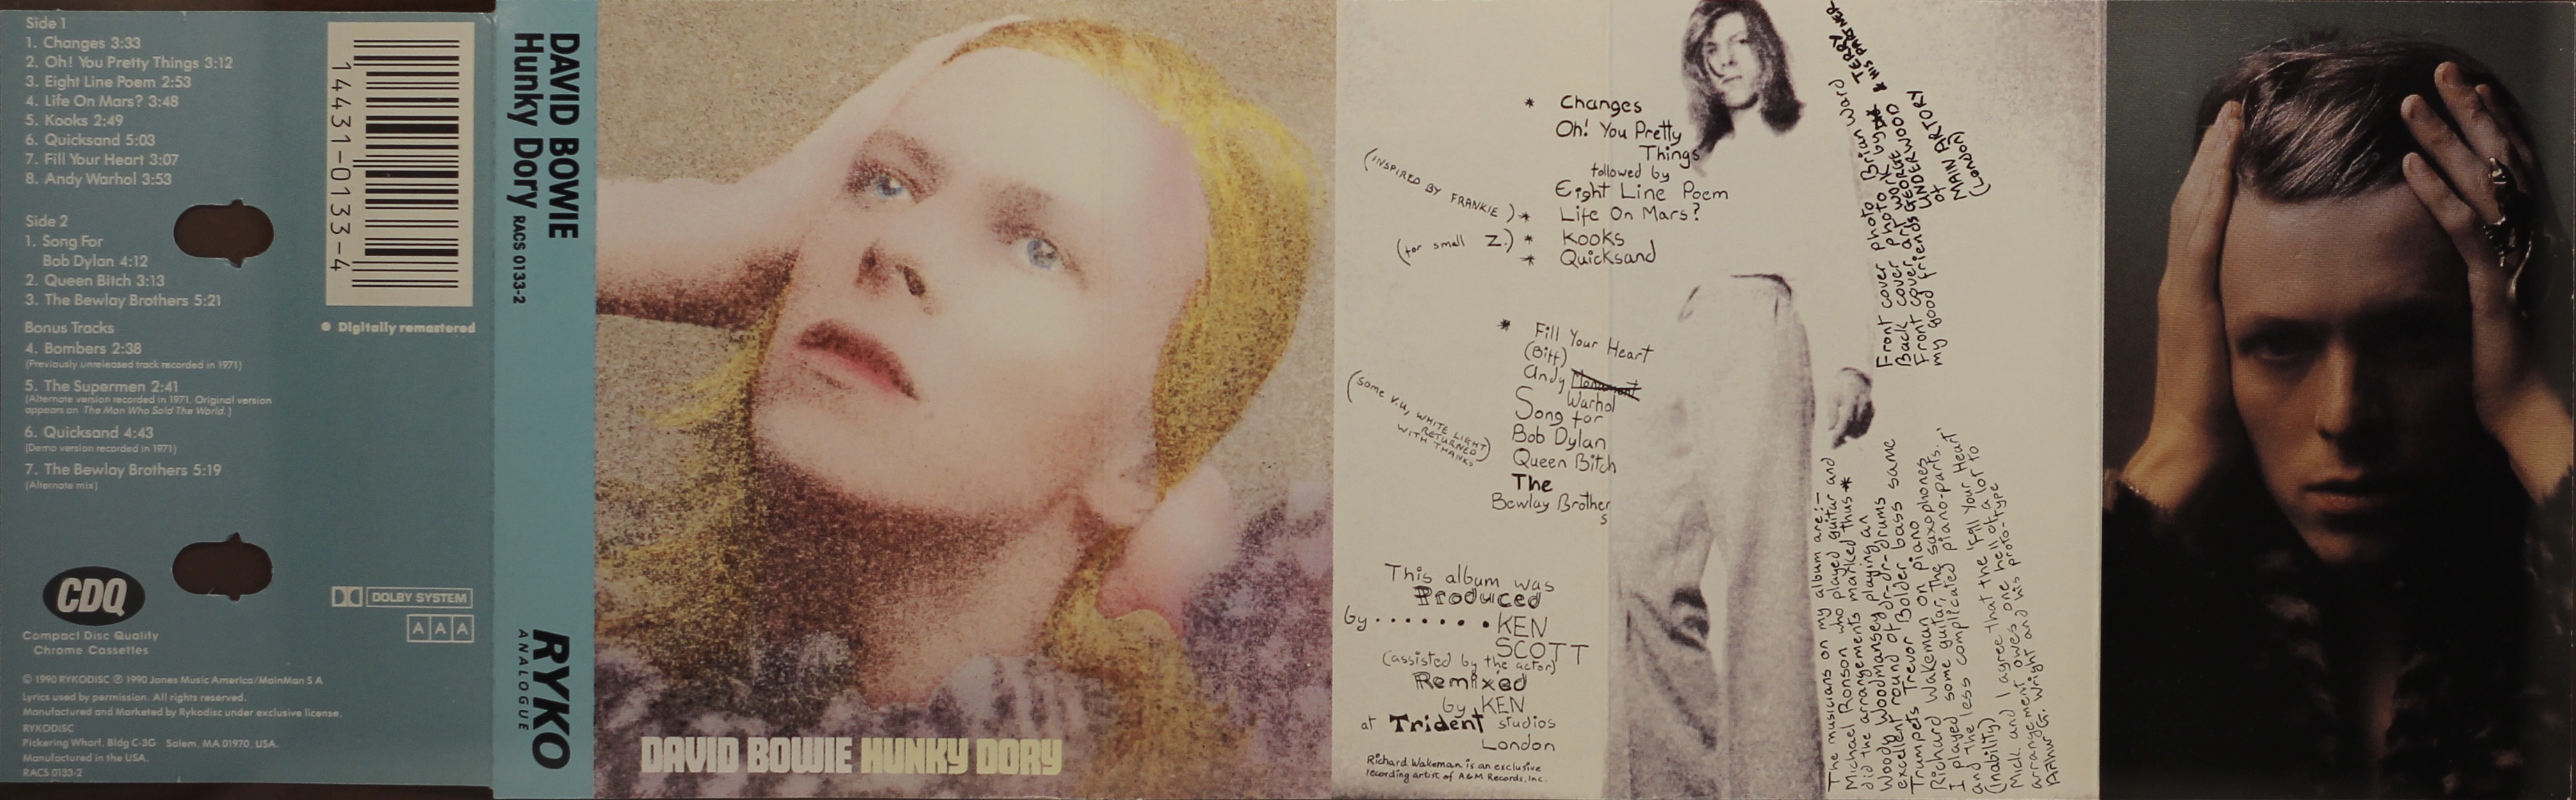 Side 1
1. Changes 3:33
2. Oh! You Pretty Things 3:12
3. Eight Line Poem 2:53
4. Life On Mars? 3:48
5. Kooks 2:49
6. Quicksand 5:03
7. Fill Your Heart 3:07
8. Andy Warhol 3:53
Side 2
1. Song For
Bob Dylan 4:12
2. Queen Bitch 3:13
3. The Bewlay Brothers 5:21
Bonus Tracks
4. Bombers 2:38
(Previously unreleased track recorded in 1971)
5. The Supermen 2:41
(Alternate version recorded in 1971. Original version
appears on The Man Who Sold The World.)
6. Quicksand 4:43
(Demo version recorded in 1971)
7. The Bewlay Brothers 5:19
(Alternate mix)
CDQ
Compact Disc Quality
Chrome Cassettes
© 1990 RYKODISC ℗ 1990 Jones Music America/MainMan S A
Lyrics used by permission. All rights reserved.
Manufactured and Marketed by Rykodisc under exclusive license.
RYKODISC
Pickering Wharf, Bldg C-3G Salem, MA 01970, USA.
Manufactured in the USA.
RACS 0133-2
14431-0133-4
● Digitally remastered
DOLBY SYSTEM
AAA
DAVID BOWIE
Hunky Dory RACS 0133-2
RYKO
ANALOGUE
DAVID BOWIE HUNKY DORY
* Changes
Oh! You Pretty
Things
followed by
Eight Line Poem
(INSPIRED BY FRANKIE) * Life On Mars?
(for small Z.) * Kooks
* Quicksand
* Fill Your Heart
(Biff)
Andy Monument
Warhol
Song for
Bob Dylan
(some V.U, WHITE LIGHT
RETURNED
WITH THANKS)
Queen Bitch
The
Bewlay Brother
s
This album was
Produced
by.......KEN
SCOTT
(assisted by the actor)
Remixed
by KEN
at Trident studios
London
Richard Wakeman is an exclusive
recording artist of A&M Records, Inc.
Front cover photo Brian Ward
Back cover photo by
Front cover art work by TERRY
& HIS PARTNER
my good friends GEORGE UNDERWOOD
of
MAIN ARTORY
(London)
The musicians on my album are:—
Michael Ronson who played guitar and
did the arrangements marked thus *
Woody Woodmansey playing an
excellent round of dr-dr-drums
Trumpets Trevor Bolder bass same
Richard Wakeman on piano
I played some guitar, the saxophones
and the less complicated piano-parts.
(inability) I agree that the 'Fill Your Heart'
Mick and I owes one hell of a lot to
arrangement and his proto-type
Arthur G. Wright